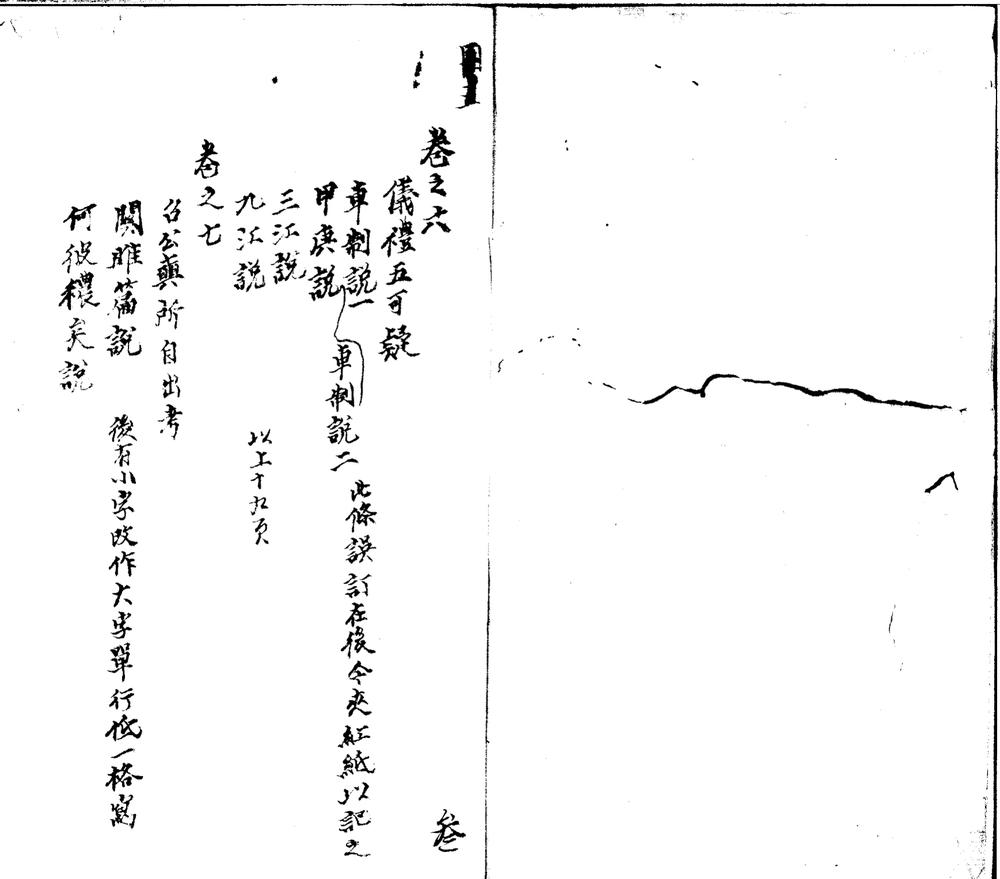 卷之六
儀禮五可疑
車制説一
車制說二 此條誤訂在後今夾紅紙以記之
甲庚説
三江説
九江説
以上十九頁
卷之七
召公奭所自出考
關雎篇說 後有小字改作大字單行低一格寫
何彼穠矣說
叁